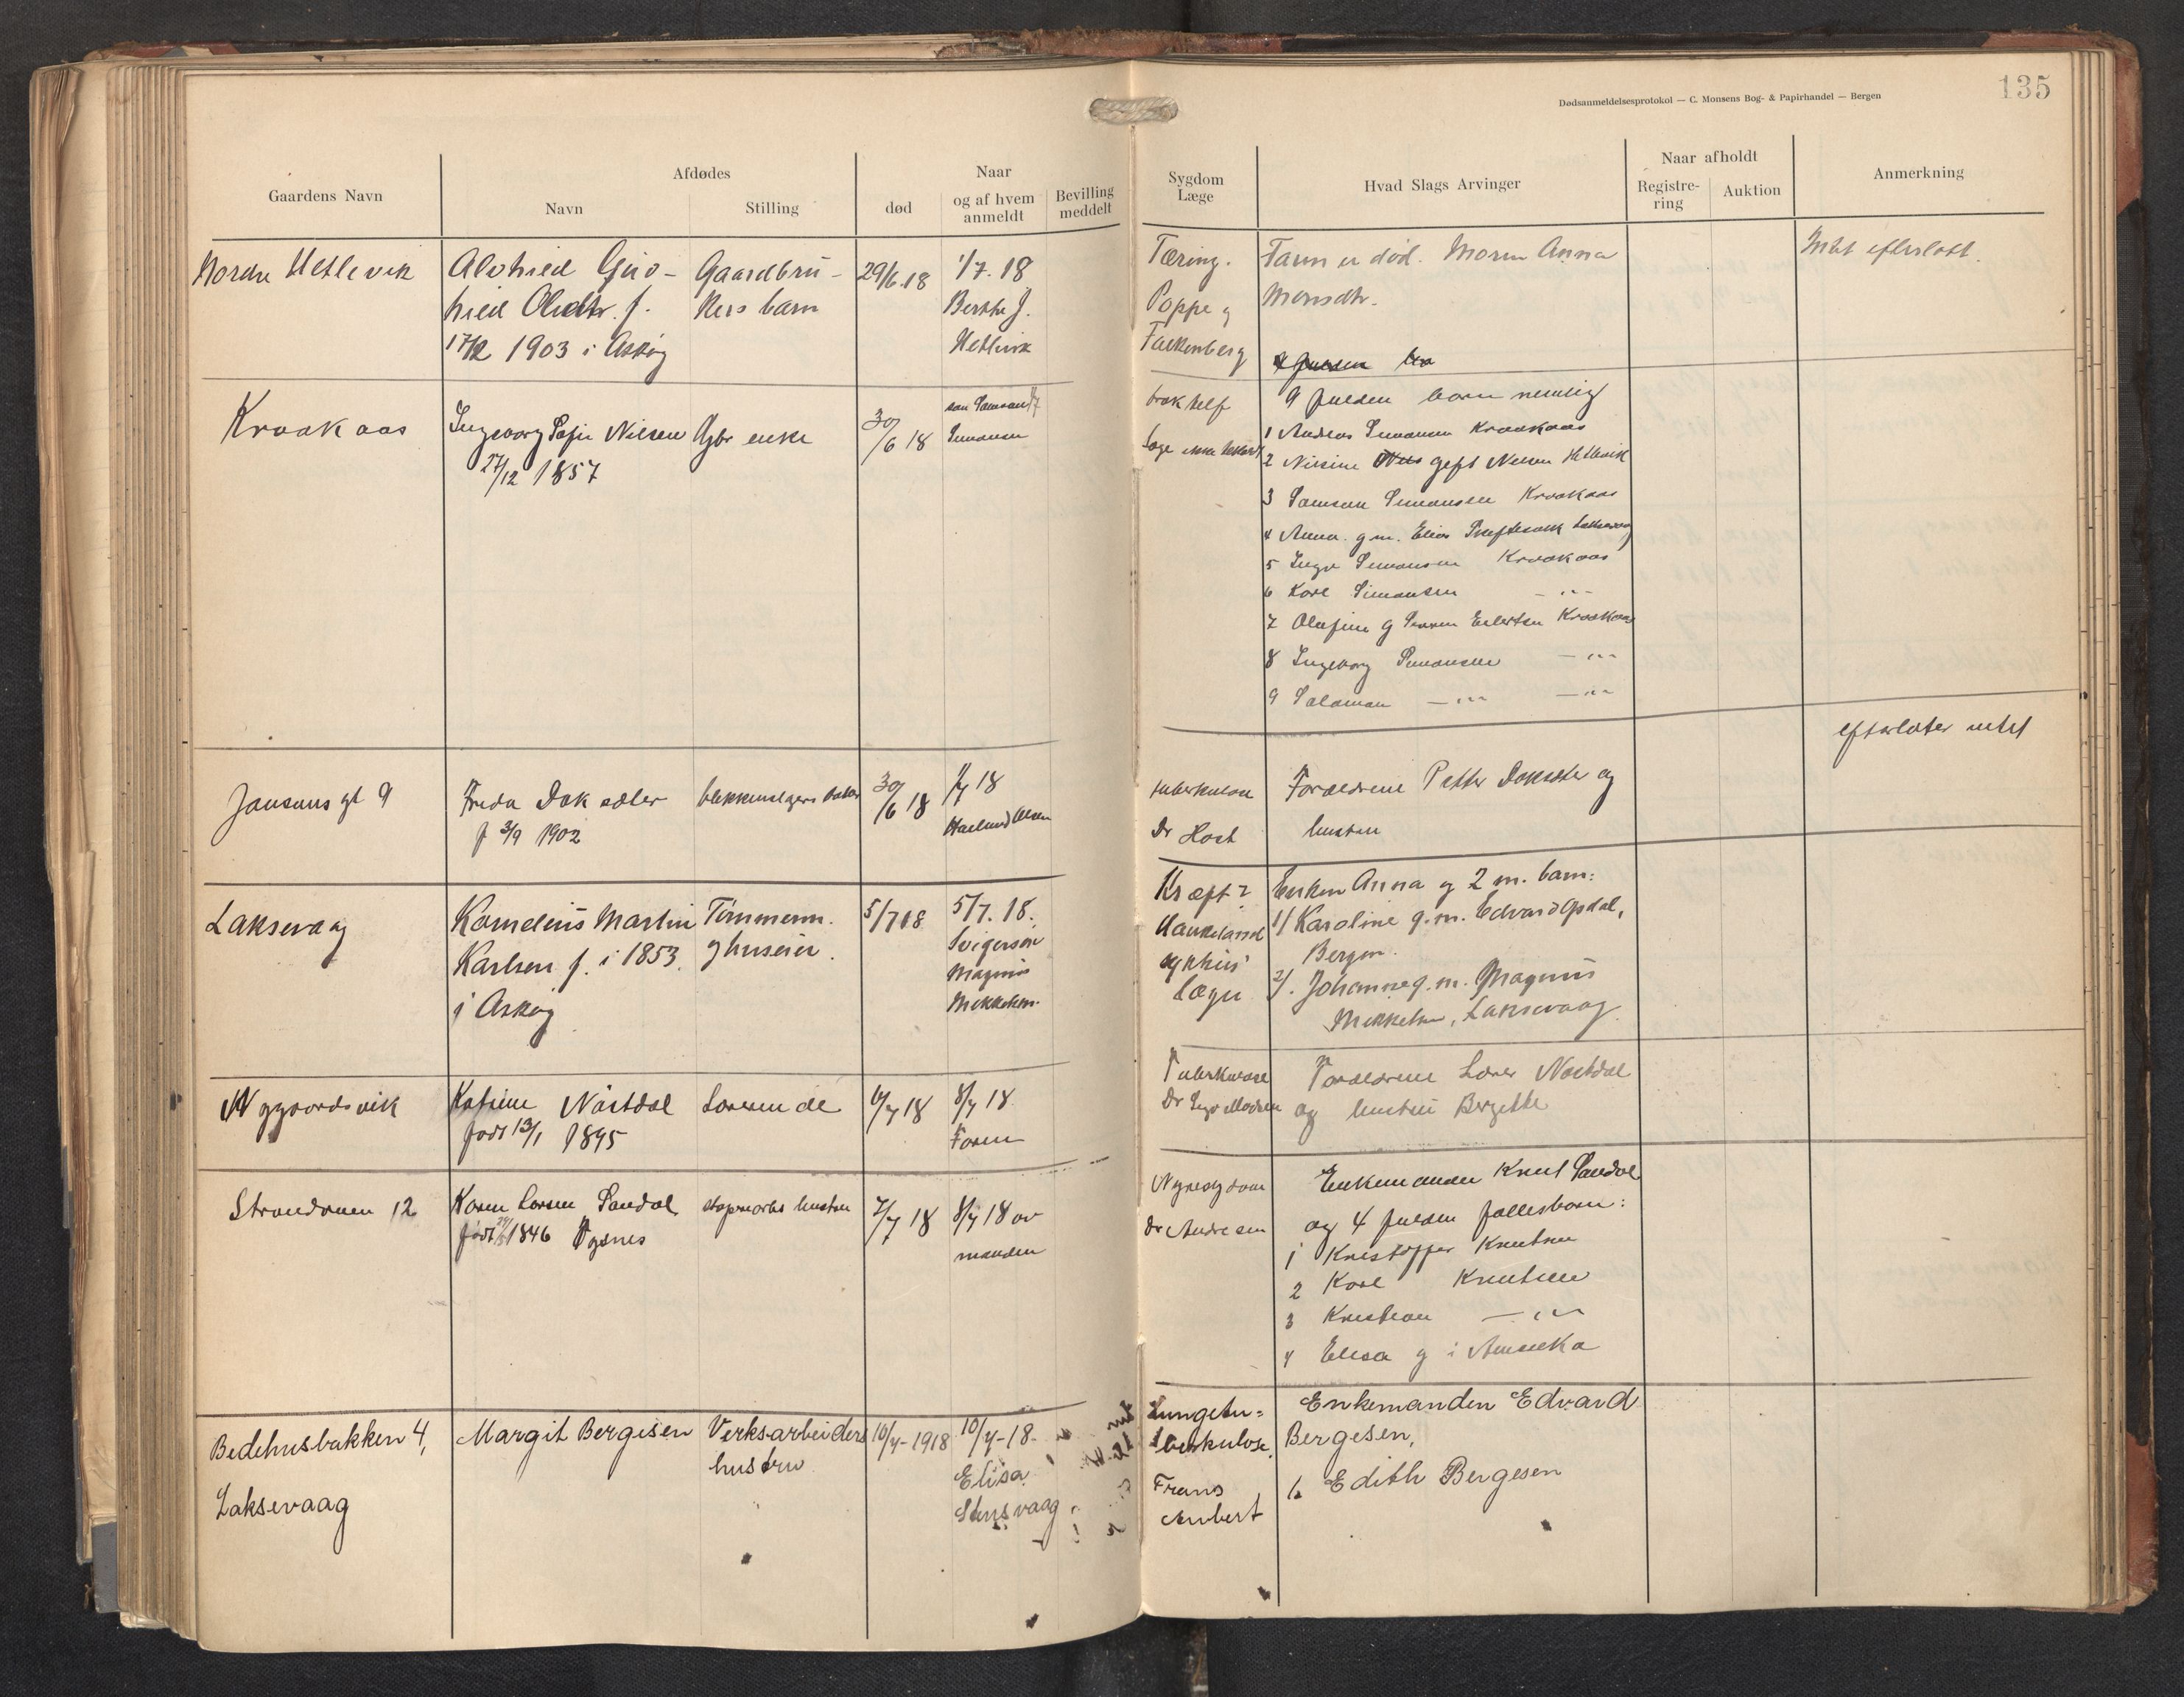 135
Dødsanmeldelsesprotokol — C. Monsens Bog- & Papirhandel — Bergen
Gaardens Navn
Afdødes
Navn
Stilling
Naar
død
og af hvem
anmeldt
Bevilling
meddelt
Sygdom
Læge
Hvad Slags Arvinger
Naar afholdt
Registre-
ring
Auktion
Anmerkning
Nordre Hetlevik
Gaardbru-
kers barn
29/6.18
1/7. 18
Berthe J.
Hetlevik
17/12 1903 i Askøy
Tæring.
Poppe og
Falkenberg
Faren er død. Moren Anna
Monsdtr.
Intet efterlatt.
Kraakaas
Ingeborg Sofie Nilsen
27/12 1857
Gbr enke
30/6 18
søn Samson
Simonsen
9 fulden børn nemlig
1 Andreas Simonsen Kraakaas
2 Nilsine gift Nilsen Hetlevik
3 Samson Simonsen Kraakaas
4 Anna g.m. Elias Laksevaag
5 Inga Simonsen Kraakaas
6 Karl Simonsen — " —
7 Olufine g Eilertsen Kraakaas
8 Ingeborg Simonsen — " —
9 Salamon — " — — " —
Jansons gt 9
Freda Doksæter
f 3/9 1902
30/6 18
1/7 18
tuberkulose
Dr Host
Forældrene Petter Doksæter og
hustru
efterlater intet
Laksevaag
Kornelius Martin
Karlsen f. i 1853
i Askøy
Tømmerm.
og huseier.
5/7 18
5/7. 18.
Svigersøn
Magnus
Mikkelsen.
Kræft?
Haukeland
sykhus'
læge
Enken Anna og 2 m. barn:
1/ Karoline g.m. Edvard Opdal,
Bergen.
2/. Johanne g.m. Magnus
Mikkelsen, Laksevaag.
Nygaardsvik
Katrine Nåstdal
født 13/1 1895
6/7 18
8/7 18
Faren
Tuberkulose
Dr Madsen
Forældrene Lærer Nåstdal
og hustru Bergitte
Strandveien 12
Karen Larsen Sandal
født 1846
hustru
7/7 18
8/7 18 av
manden
Nyresygdom
Dr Andresen
Enkemanden Knut Sandal
og 4 fulden fællesbørn:
1 Kristoffer Knutsen
2 Karl Knutsen
3 Kristian — " —
4 Elisa g i Amerika
Bedehusbakken 4,
Laksevaag
Margit Bergesen
Verksarbeiders
hustru
10/7-1918
10/7-18.
Elisa
Stensvaag
Lungetu=
berkulose.
Frans
Aubert
Enkemanden Edvard
Bergesen,
1. Edith Bergesen